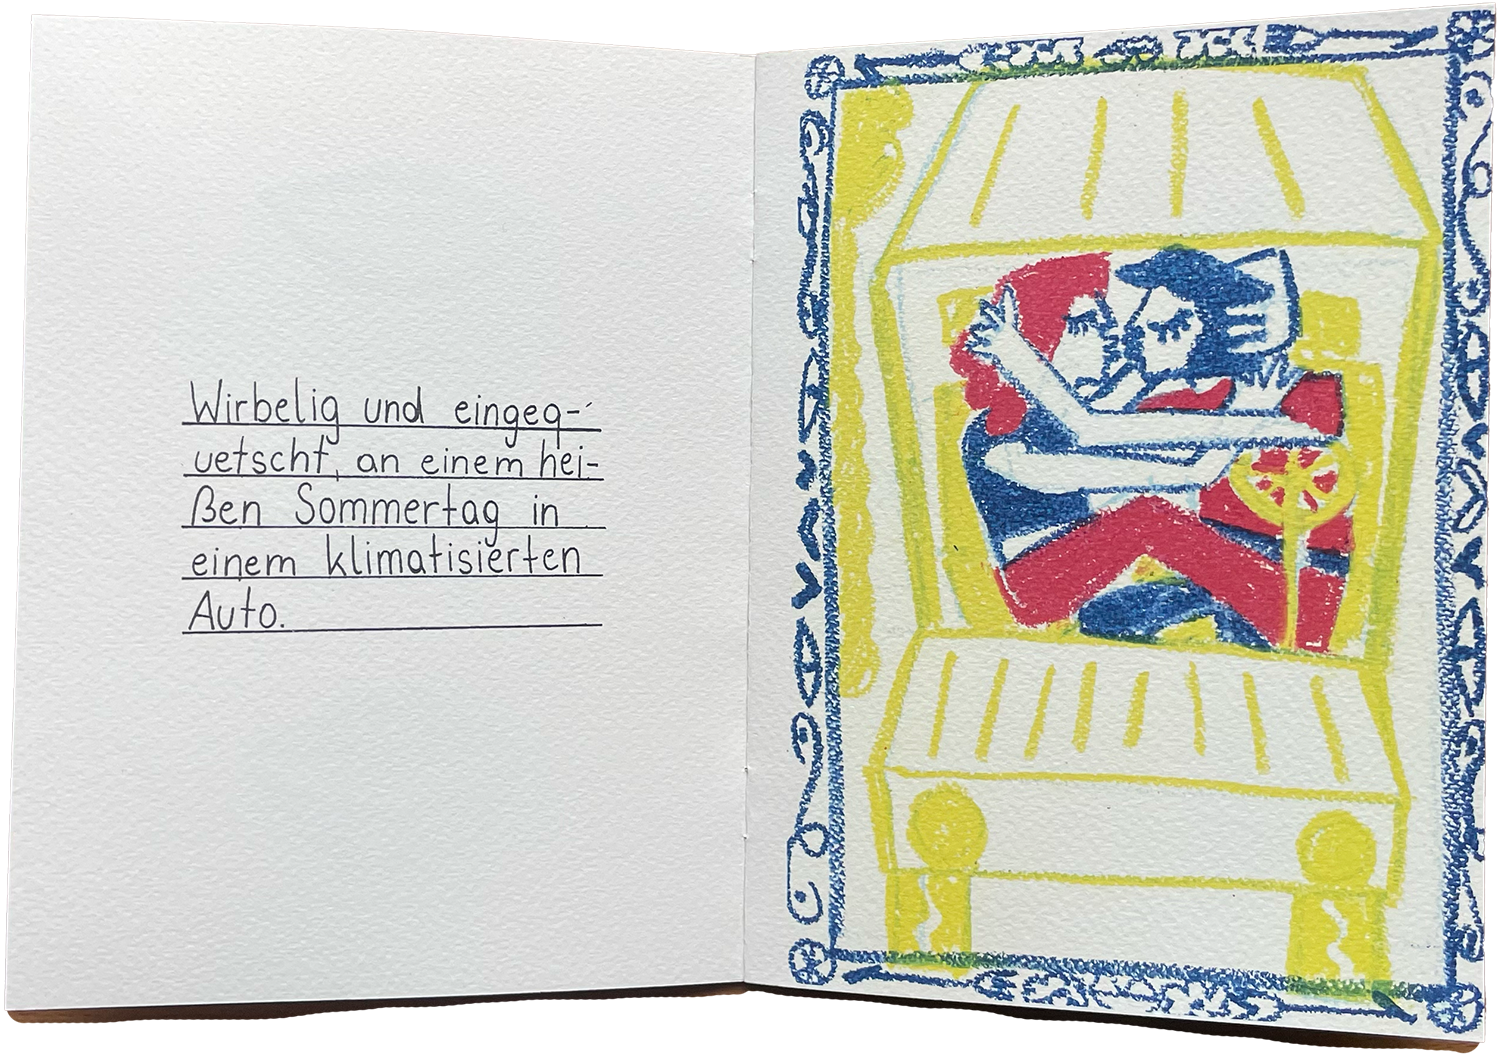 Wirbelig und eingeq-
uetscht, an einem hei-
ßen Sommertag in
einem klimatisierten
Auto.